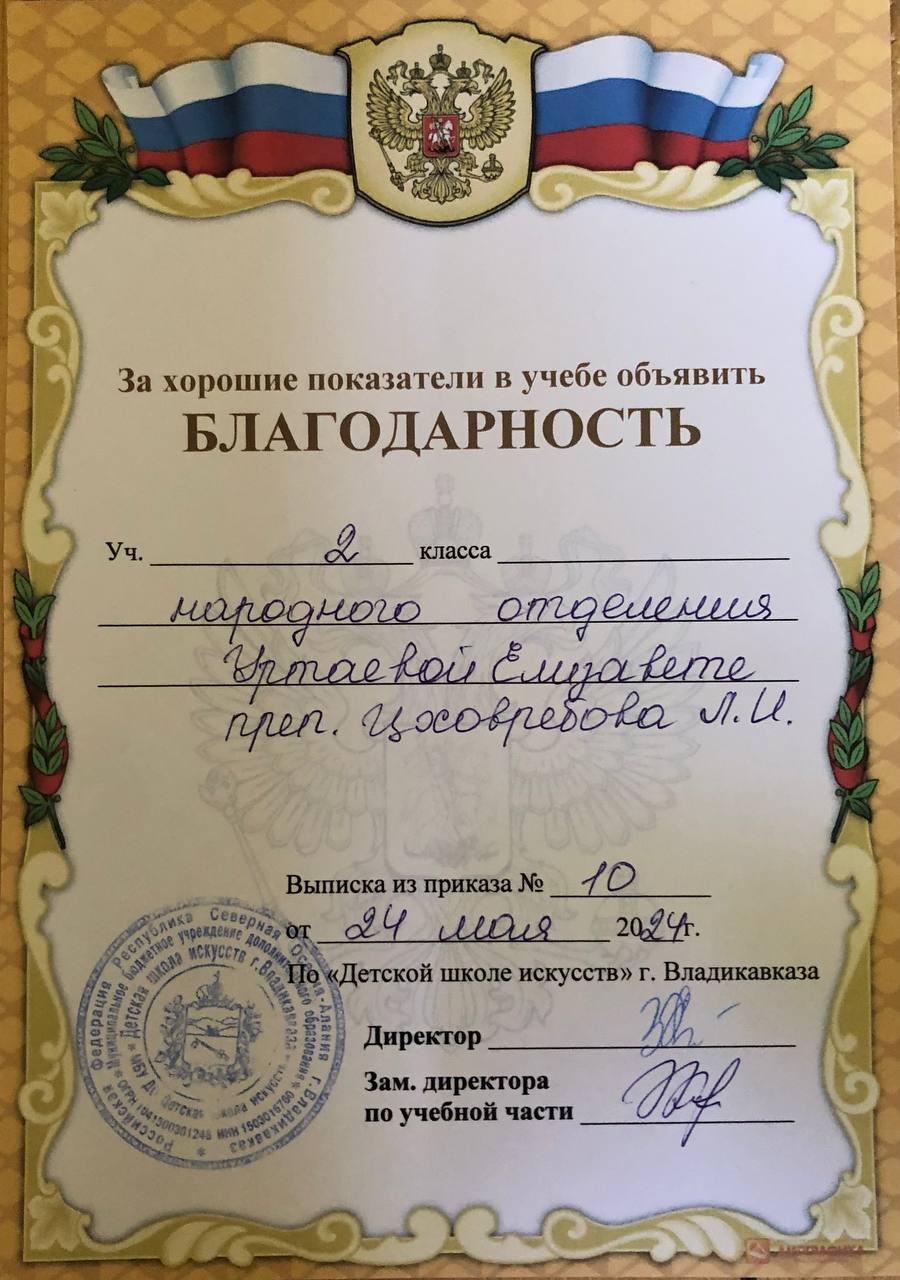 За хорошие показатели в учебе объявить
БЛАГОДАРНОСТЬ
Уч. 2 класса
народного отделения
Уртаевой Елизавете
преп. Цховребова Л.И.
Выписка из приказа № 10
от 24 мая 2024г.
По «Детской школе искусств» г. Владикавказа
Директор
Зам. директора
по учебной части
Российская Федерация Республика Северная Осетия-Алания г. Владикавказ
Муниципальное бюджетное учреждение дополнительного образования
Детская школа искусств г. Владикавказа